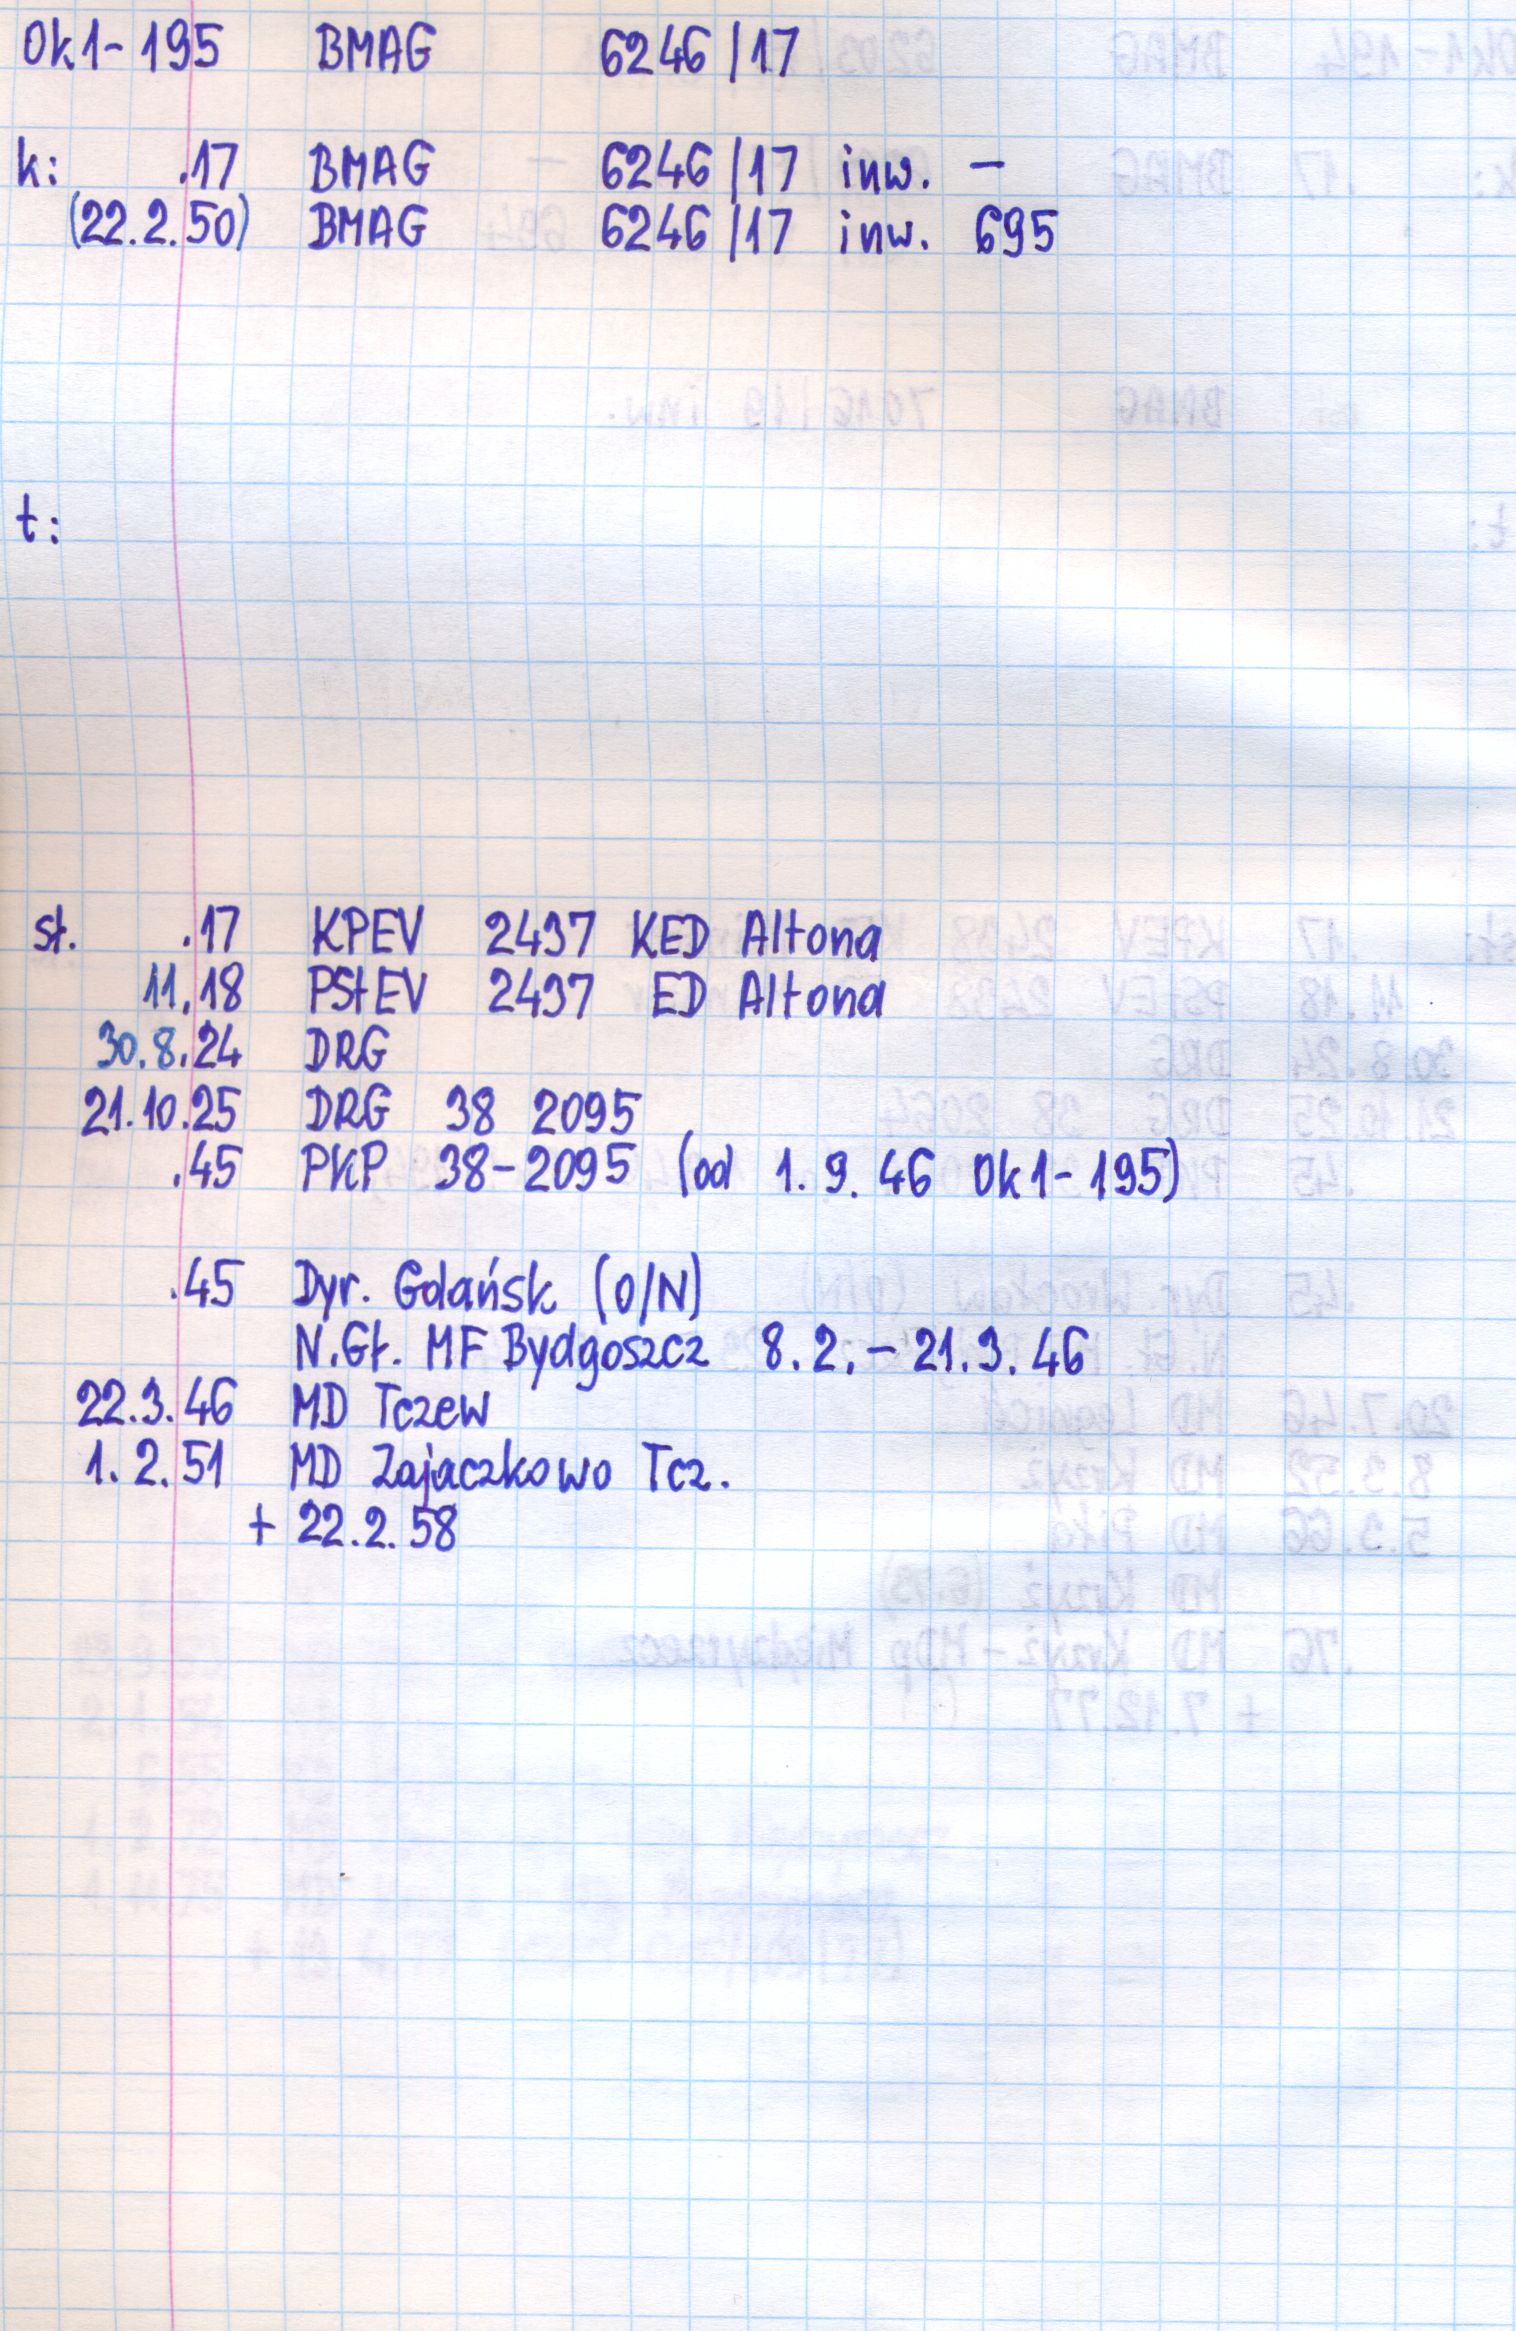 Ok1-195 BMAG 6246/17
k: .17 BMAG 6246/17 inw. –
(22.2.50) BMAG 6246/17 inw. 695
t:
st. .17 KPEV 2437 KED Altona
11.18 PStEV 2437 ED Altona
30.8.24 DRG
21.10.25 DRG 38 2095
.45 PKP 38-2095 (od 1.9.46 Ok1-195)
.45 Dyr. Gdańsk (O/N)
N.Gł. MF Bydgoszcz 8.2.-21.3.46
22.3.46 MD Tczew
1.2.51 MD Zajaczkowo Tcz.
+ 22.2.58